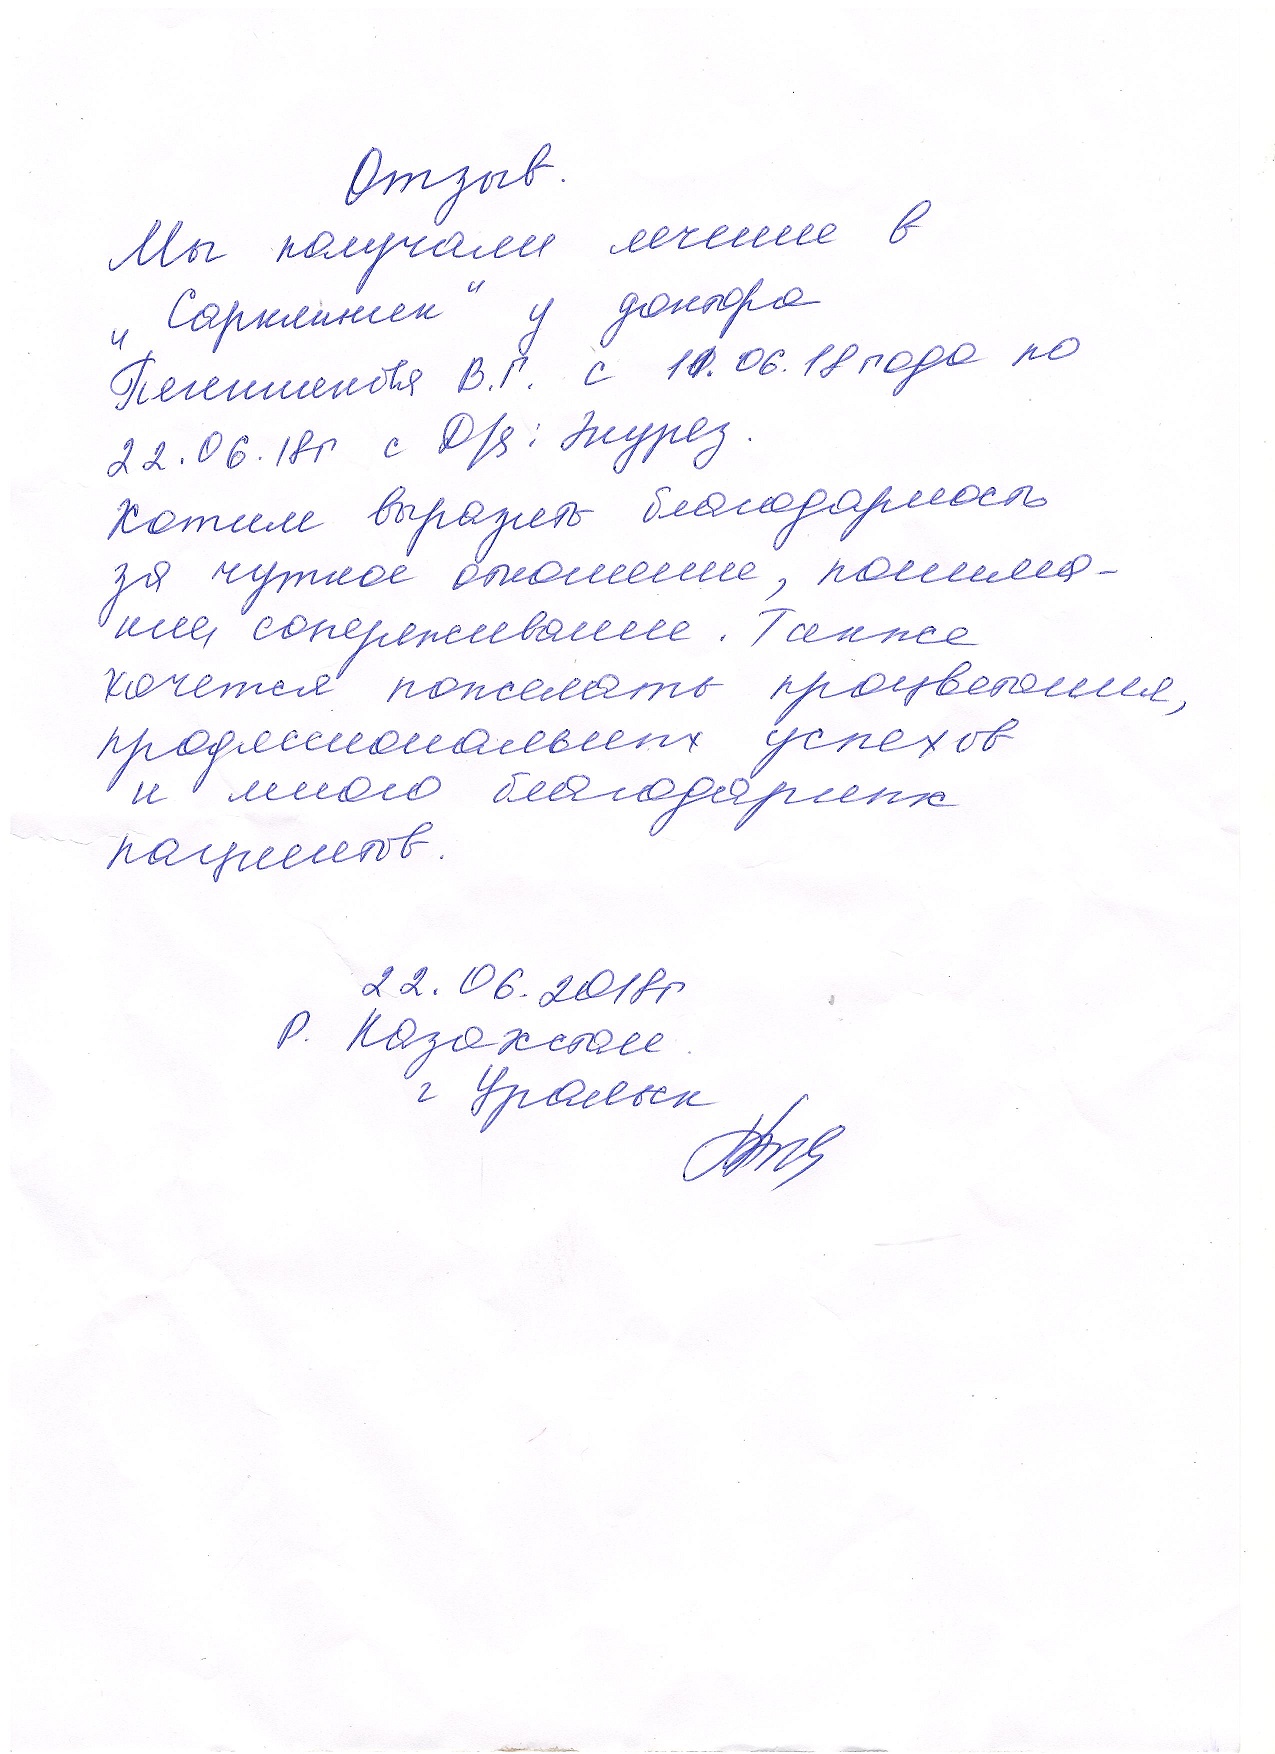 Отзыв.
Мы получали лечение в
„Сарклиник" у доктора
В.Г. с 11.06.18 года по
22.06.18г с D/s: Энурез.
Хотим выразить благодарность
за чуткое отношение, понима-
ние, сопереживание. Также
хочется пожелать процветания,
профессиональных успехов
и много благодарных
пациентов.
22.06.2018г
Р. Казахстан
г Уральск